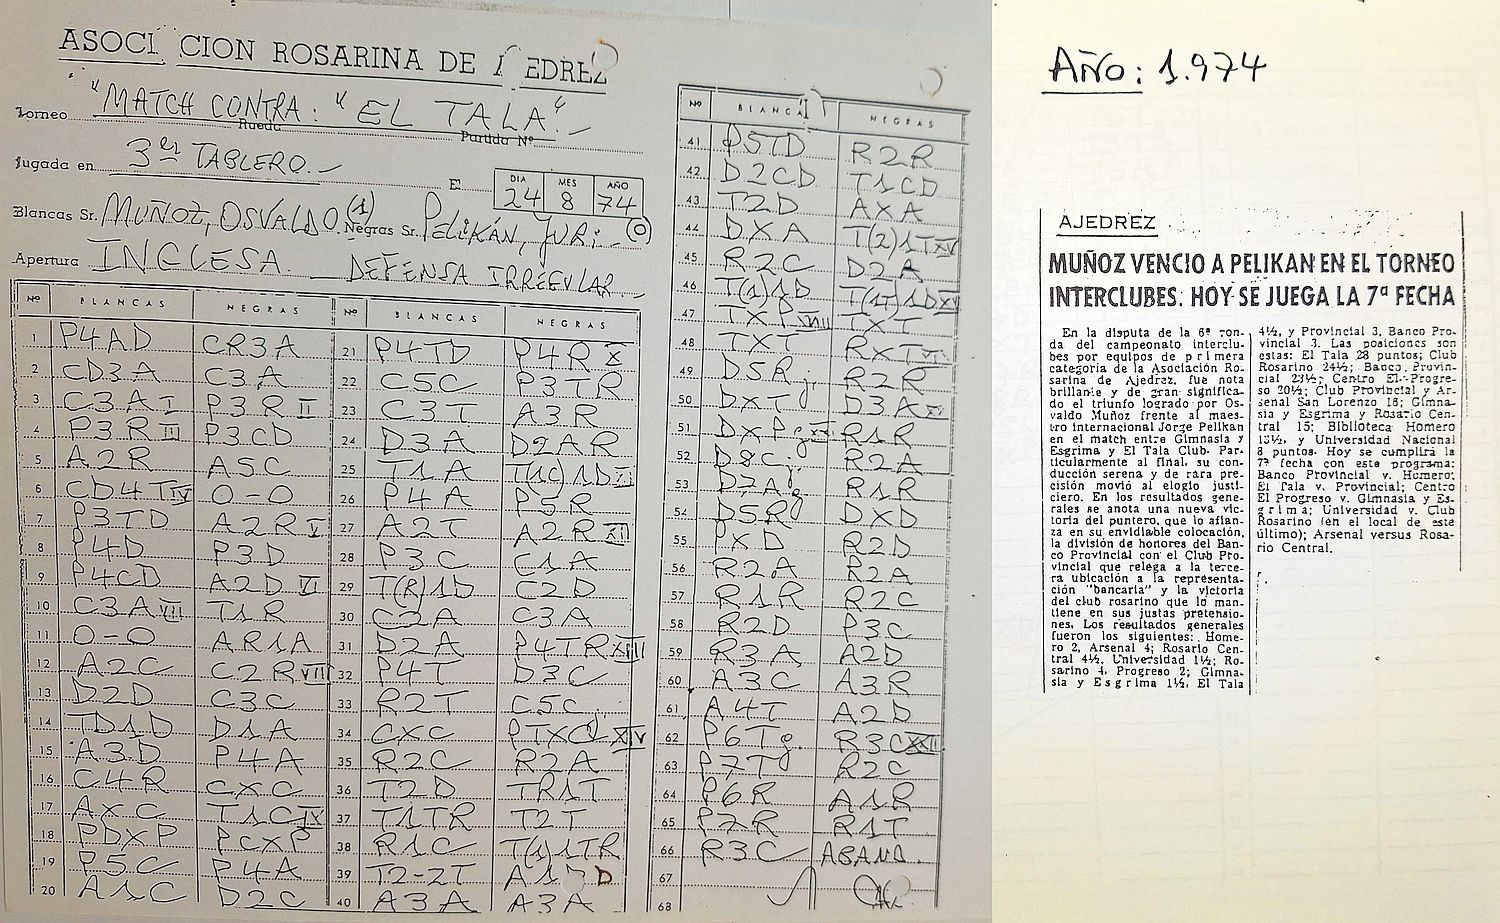 ASOCI CION ROSARINA DE EDREZ
Torneo "MATCH CONTRA: "EL TALA".-
Rueda Partida Nº
Jugada en 3er TABLERO.-
El DIA 24 MES 8 AÑO 74
Blancas Sr. MUÑOZ, OSVALDO. (1) Negras Sr. PELIKÁN, YURI.- (0)
Apertura INGLESA. DEFENSA IRREGULAR.-
Nº BLANCAS NEGRAS
1 P4AD CR3A
2 CD3A C3A
3 C3A I P3R II
4 P3R III P3CD
5 A2R A5C
6 CD4T IV 0-0
7 P3TD A2R V
8 P4D P3D
9 P4CD A2D VI
10 C3A VII T1R
11 0-0 AR1A
12 A2C C2R VIII
13 D2D C3C
14 TD1D D1A
15 A3D P4A
16 C4R CXC
17 AXC T1C IX
18 PDXP PCXP
19 P5C P4A
20 A1C D2C
Nº BLANCAS NEGRAS
21 P4TD P4R X
22 C5C P3TR
23 C3T A3R
24 D3A D2AR
25 T1A T(1C)1D XI
26 P4A P5R
27 A2T A2R XII
28 P3C C1A
29 T(R)1D C2D
30 C2A C3A
31 D2A P4TR XIII
32 P4T D3C
33 R2T C5C
34 CXC PTXC XIV
35 R2C R2A
36 T2D TR1T
37 T1TR T2T
38 R1C T(1)1TR
39 T2-2T A1 D
40 A3A A3A
Nº BLANCAS NEGRAS
41 P5TD R2R
42 D2CD T1CD
43 T2D AXA
44 DXA T(2)1T XV
45 R2C D2A
46 T(1)1D T(1T)1D XVI
47 TXP XVII TXT
48 TXT RXT
49 D5R j. R2R
50 DXT D3A
51 DXPg R1R
52 D8C j. R2A
53 D7A j R1R
54 D5R j DXD
55 PXD R2D
56 R2A R2A
57 R1R R2C
58 R2D P3C
59 R3A A2D
60 A3C A3R
61 A4T A2D
62 P6T j. R3C XXII
63 P7T R2C
64 P6R A1R
65 P7R R1T
66 R3C ABAND.
67
68
AÑO: 1.974
AJEDREZ
MUÑOZ VENCIO A PELIKAN EN EL TORNEO
INTERCLUBES. HOY SE JUEGA LA 7ª FECHA
En la disputa de la 6ª ron-
da del campeonato interclu-
bes por equipos de primera
categoría de la Asociación Ro-
sarina de Ajedrez, fue nota
brillante y de gran significa-
do el triunfo logrado por Os-
valdo Muñoz frente al maes-
tro internacional Jorge Pelikan
en el match entre Gimnasia y
Esgrima y El Tala Club. Par-
ticularmente al final, su con-
ducción serena y de rara pre-
cisión movió al elogio justi-
ciero. En los resultados gene-
rales se anota una nueva vic-
toria del puntero, que lo afian-
za en su envidiable colocación,
la división de honores del Ban-
co Provincial con el Club Pro-
vincial que relega a la terce-
ra ubicación a la representa-
ción "bancaria" y la victoria
del club rosarino que lo man-
tiene en sus justas pretensio-
nes. Los resultados generales
fueron los siguientes: Home-
ro 2, Arsenal 4; Rosario Cen-
tral 4½, Universidad 1½; Ro-
sarino 4, Progreso 2; Gimna-
sia y Esgrima 1½, El Tala
4½, y Provincial 3, Banco Pro-
vincial 3. Las posiciones son
estas: El Tala 28 puntos; Club
Rosarino 24½; Banco Provin-
cial 23½; Centro El Progre-
so 20½; Club Provincial y Ar-
senal San Lorenzo 16; Gimna-
sia y Esgrima y Rosario Cen-
tral 15; Biblioteca Homero
13½, y Universidad Nacional
8 puntos. Hoy se cumplirá la
7ª fecha con este programa:
Banco Provincial v. Homero;
El Tala v. Provincial; Centro
El Progreso v. Gimnasia y Es-
grima; Universidad v. Club
Rosarino (en el local de este
último); Arsenal versus Rosa-
rio Central.